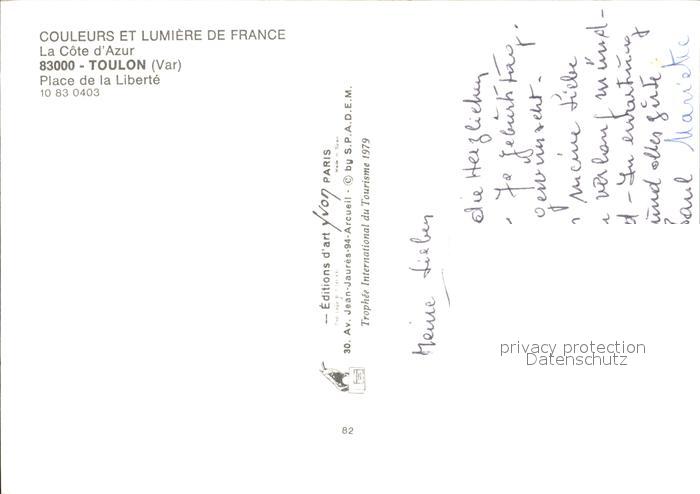 COULEURS ET LUMIÈRE DE FRANCE
La Côte d'Azur
83000 - TOULON (Var)
Place de la Liberté
10 83 0403
Éditions d'art yvon PARIS
30. Av. Jean-Jaurès-94-Arcueil - © by S.P.A.D.E.M.
Trophée International du Tourisme 1979
82
Meine Lieben
die Herzlichen
gebürtstag
gewünscht.
meine Liebe
münd-
In erwartung
und alles gûte
Marietta
privacy protection
Datenschutz